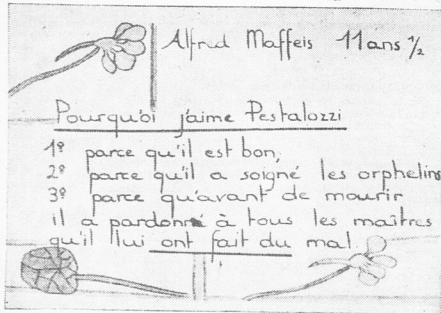 Alfred Maffeis 11 ans 1/2
Pourquoi j'aime Pestalozzi
1º parce qu'il est bon,
2º parce qu'il a soigné les orphelins
3º parce qu'avant de mourir
il a pardonné à tous les maîtres
qu'il lui ont fait du mal.